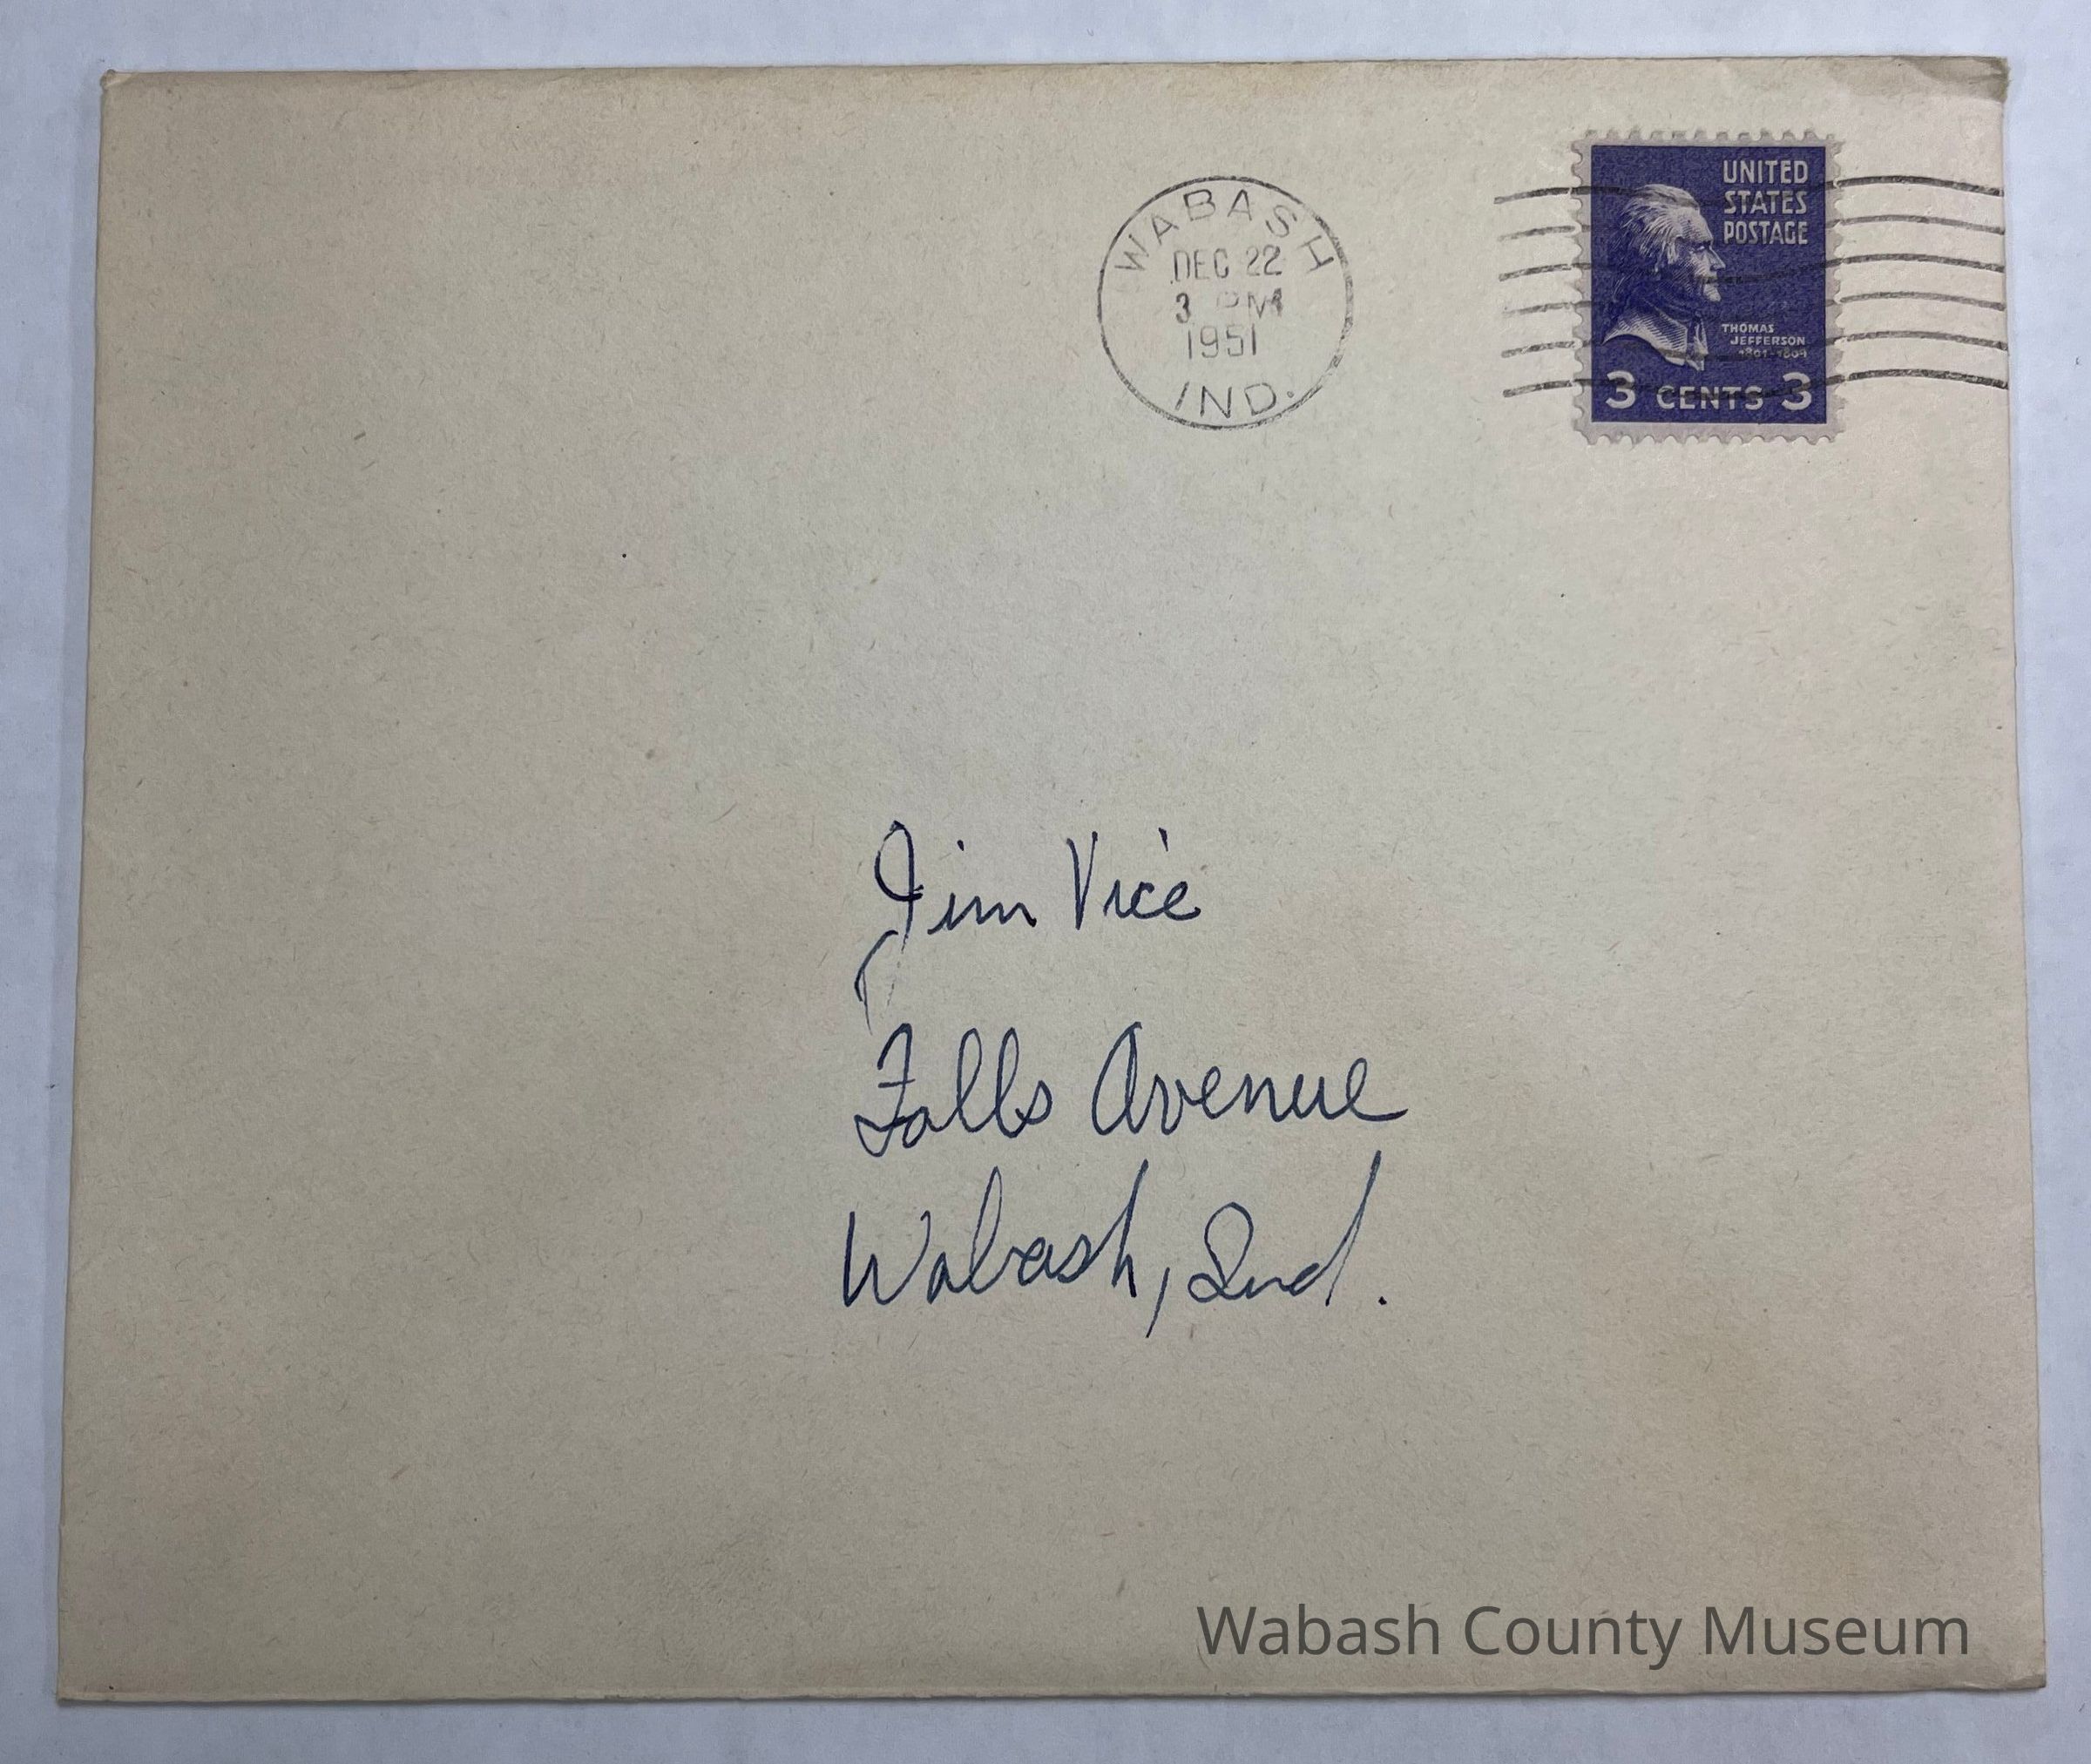 WABASH
DEC 22
3 PM
1951
IND.
UNITED
STATES
POSTAGE
THOMAS
JEFFERSON
1801-1809
3 CENTS 3
Jim Vice
Falls Avenue
Wabash, Ind.
Wabash County Museum